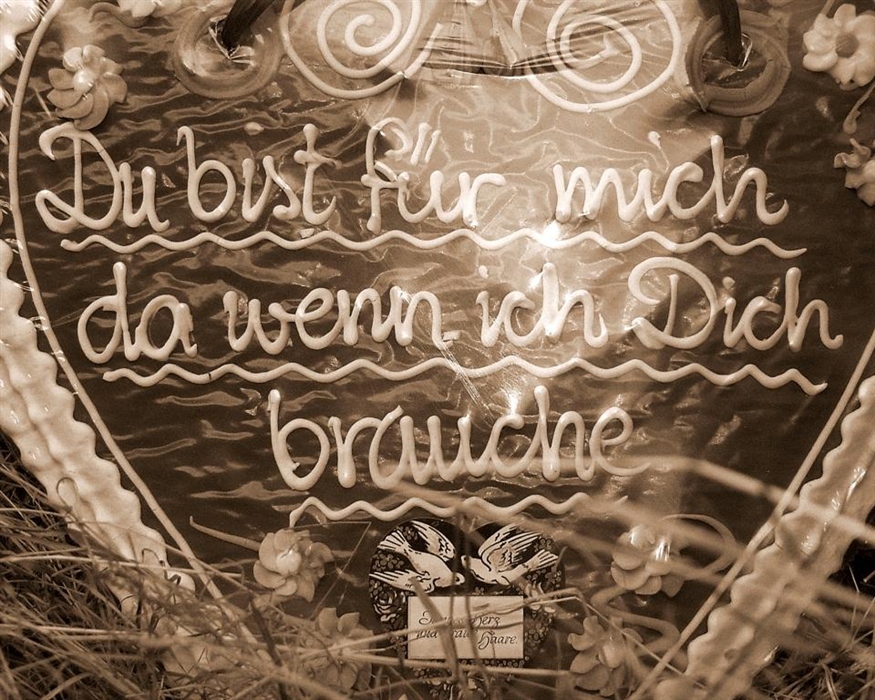 Du bist für mich
da wenn ich Dich
brauche
Herz
und graue Haare.